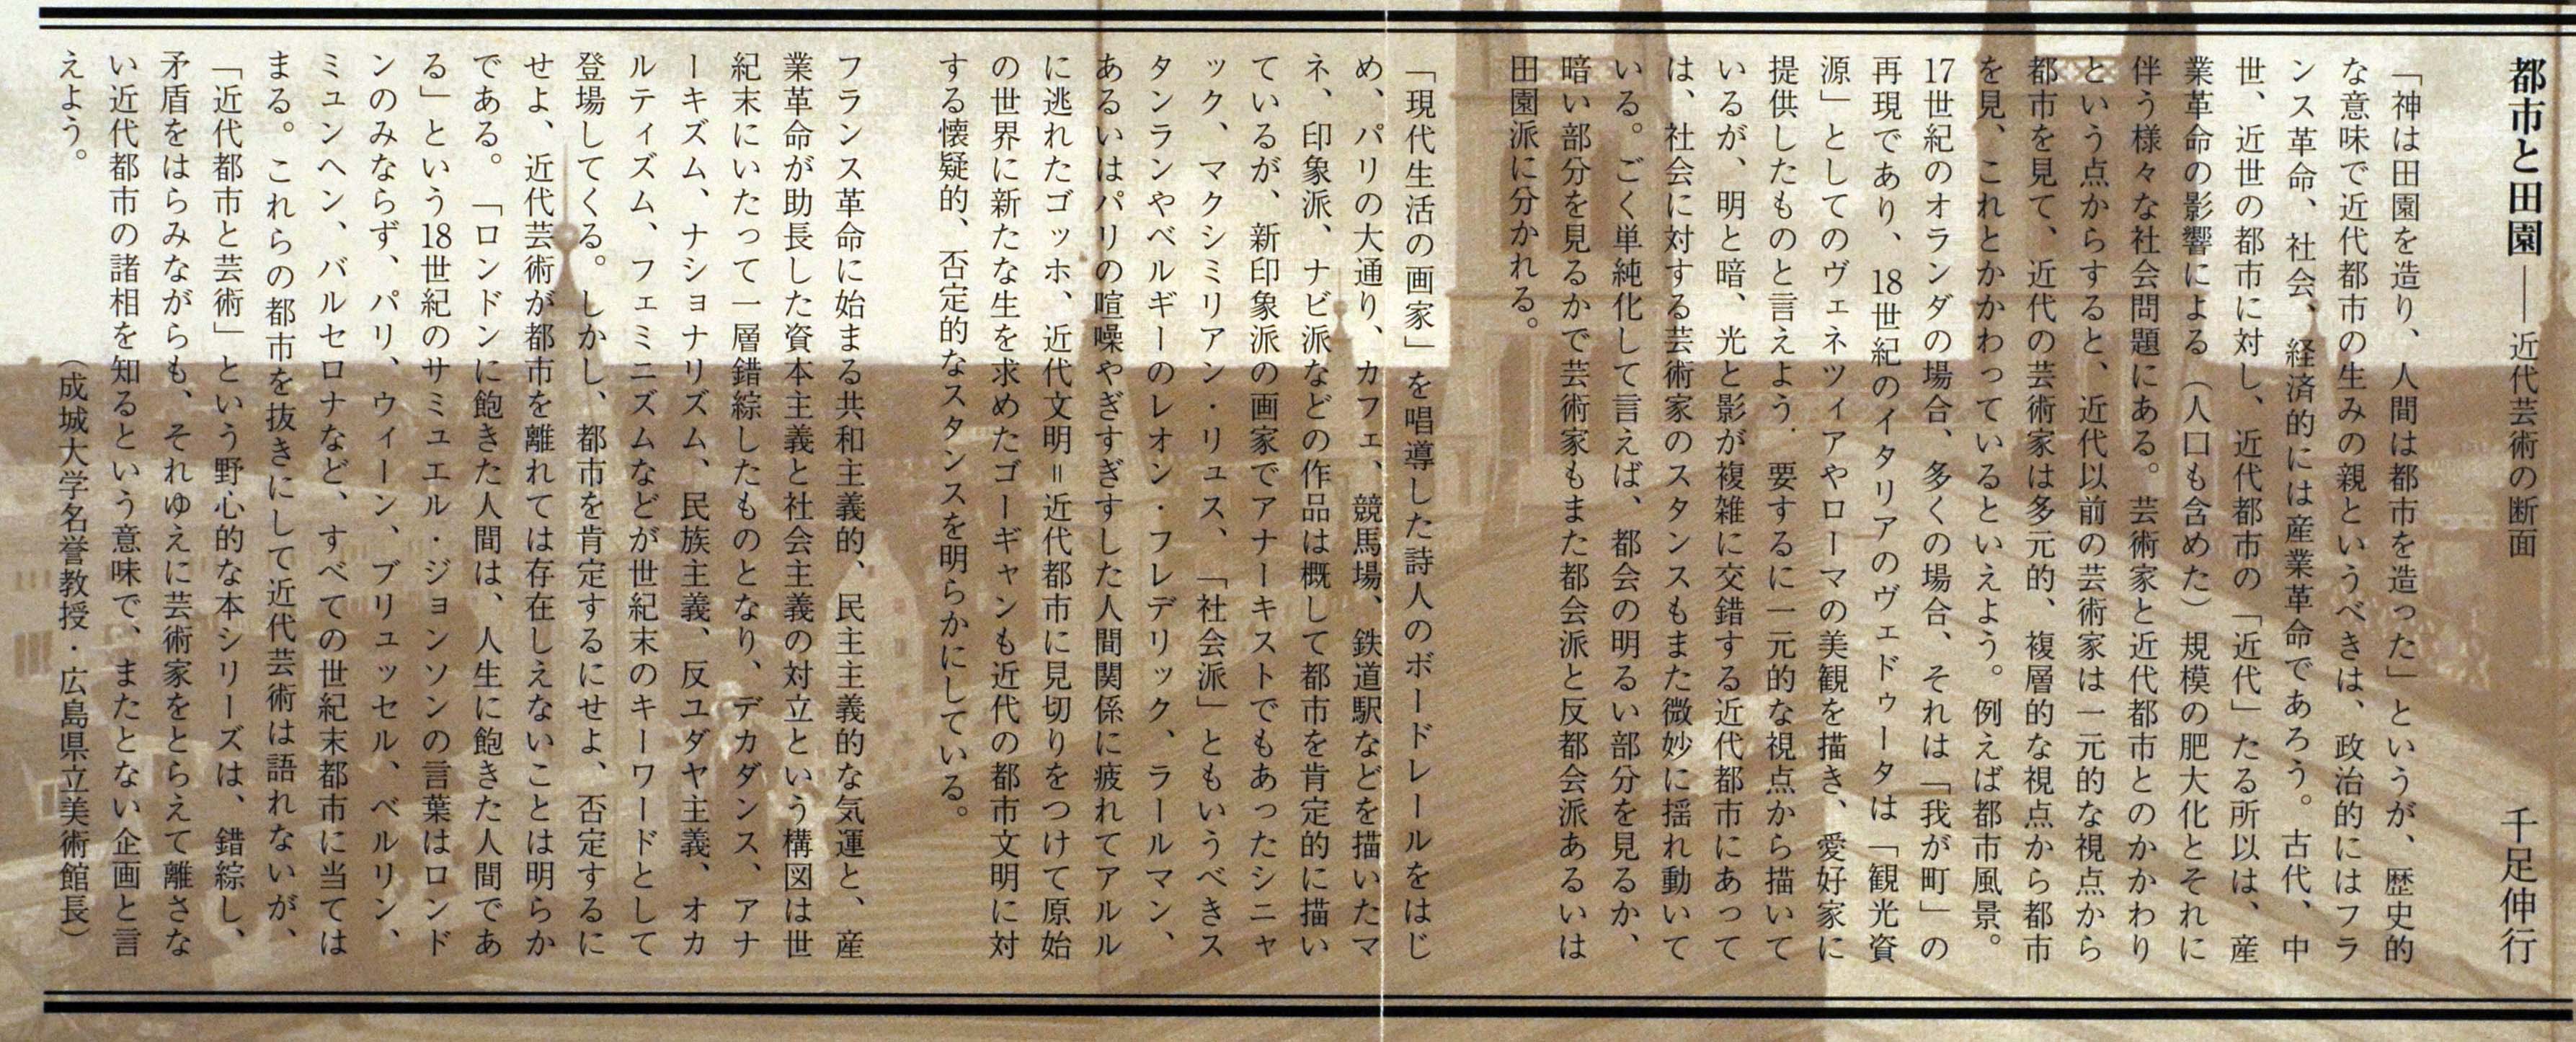 都市と田園――近代芸術の断面　千足伸行
「神は田園を造り、人間は都市を造った」というが、歴史的
な意味で近代都市の生みの親というべきは、政治的にはフラ
ンス革命、社会、経済的には産業革命であろう。古代、中
世、近世の都市に対し、近代都市の「近代」たる所以は、産
業革命の影響による（人口も含めた）規模の肥大化とそれに
伴う様々な社会問題にある。芸術家と近代都市とのかかわり
という点からすると、近代以前の芸術家は一元的な視点から
都市を見て、近代の芸術家は多元的、複層的な視点から都市
を見、これとかかわっているといえよう。例えば都市風景。
17世紀のオランダの場合、多くの場合、それは「我が町」の
再現であり、18世紀のイタリアのヴェドゥータは「観光資
源」としてのヴェネツィアやローマの美観を描き、愛好家に
提供したものと言えよう．要するに一元的な視点から描いて
いるが、明と暗、光と影が複雑に交錯する近代都市にあって
は、社会に対する芸術家のスタンスもまた微妙に揺れ動いて
いる。ごく単純化して言えば、都会の明るい部分を見るか、
暗い部分を見るかで芸術家もまた都会派と反都会派あるいは
田園派に分かれる。
「現代生活の画家」を唱導した詩人のボードレールをはじ
め、パリの大通り、カフェ、競馬場、鉄道駅などを描いたマ
ネ、印象派、ナビ派などの作品は概して都市を肯定的に描い
ているが、新印象派の画家でアナーキストでもあったシニャ
ック、マクシミリアン・リュス、「社会派」ともいうべきス
タンランやベルギーのレオン・フレデリック、ラールマン、
あるいはパリの喧噪やぎすぎすした人間関係に疲れてアルル
に逃れたゴッホ、近代文明＝近代都市に見切りをつけて原始
の世界に新たな生を求めたゴーギャンも近代の都市文明に対
する懐疑的、否定的なスタンスを明らかにしている。
フランス革命に始まる共和主義的、民主主義的な気運と、産
業革命が助長した資本主義と社会主義の対立という構図は世
紀末にいたって一層錯綜したものとなり、デカダンス、アナ
ーキズム、ナショナリズム、民族主義、反ユダヤ主義、オカ
ルティズム、フェミニズムなどが世紀末のキーワードとして
登場してくる。しかし、都市を肯定するにせよ、否定するに
せよ、近代芸術が都市を離れては存在しえないことは明らか
である。「ロンドンに飽きた人間は、人生に飽きた人間であ
る」という18世紀のサミュエル・ジョンソンの言葉はロンド
ンのみならず、パリ、ウィーン、ブリュッセル、ベルリン、
ミュンヘン、バルセロナなど、すべての世紀末都市に当ては
まる。これらの都市を抜きにして近代芸術は語れないが、
「近代都市と芸術」という野心的な本シリーズは、錯綜し、
矛盾をはらみながらも、それゆえに芸術家をとらえて離さな
い近代都市の諸相を知るという意味で、またとない企画と言
えよう。
（成城大学名誉教授・広島県立美術館長）